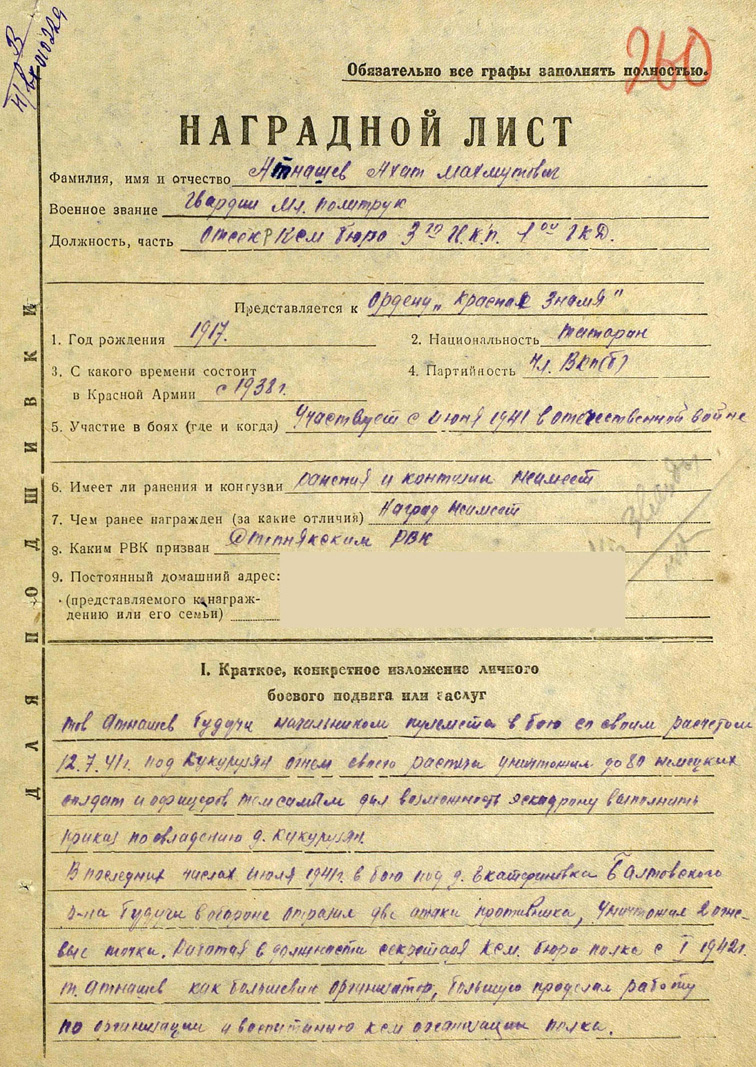 260
Обязательно все графы заполнять полностью.
НАГРАДНОЙ ЛИСТ
Фамилия, имя и отчество Атнашев Ахат Махмутович
Военное звание Гвардии Мл. политрук
Должность, часть Отсекр Ксм бюро 3го Г.К.П. 1ой ГКД.
Представляется к Ордену „Красная Знамя"
1. Год рождения 1917.
2. Национальность татарин
3. С какого времени состоит
в Красной Армии с 1938 г.
4. Партийность чл. ВКП(б)
5. Участие в боях (где и когда) Участвует с июня 1941 в отечественной войне
6. Имеет ли ранения и контузии ранения и контузии неимеет
7. Чем ранее награжден (за какие отличия) Наград неимеет
8. Каким РВК призван Степнякским РВК
9. Постоянный домашний адрес:
(представляемого к награж-
дению или его семьи)
Звезды
ДЛЯ ПОДШИВКИ
I. Краткое, конкретное изложение личного
боевого подвига или заслуг
тов Атнашев будучи начальником пулемета в бою со своим расчетом
12.7.41г. под Кукурузян огнем своего расчета уничтожил до 80 немецких
солдат и офицеров темсамым дал возможность эскадрону выполнить
приказ по овладению д. Кукурузян.
В последних числах июля 1941г. в бою под д. Екатериновка Балтовского
р-на будучи в обороне отразил две атаки противника, уничтожил 2 огне-
вые точки. Работая в должности секретаря Ксм. бюро полка с I 1942г.
т. Атнашев как большевик организатор, большую проделал работу
по организации и воспитанию ксм организации полка.